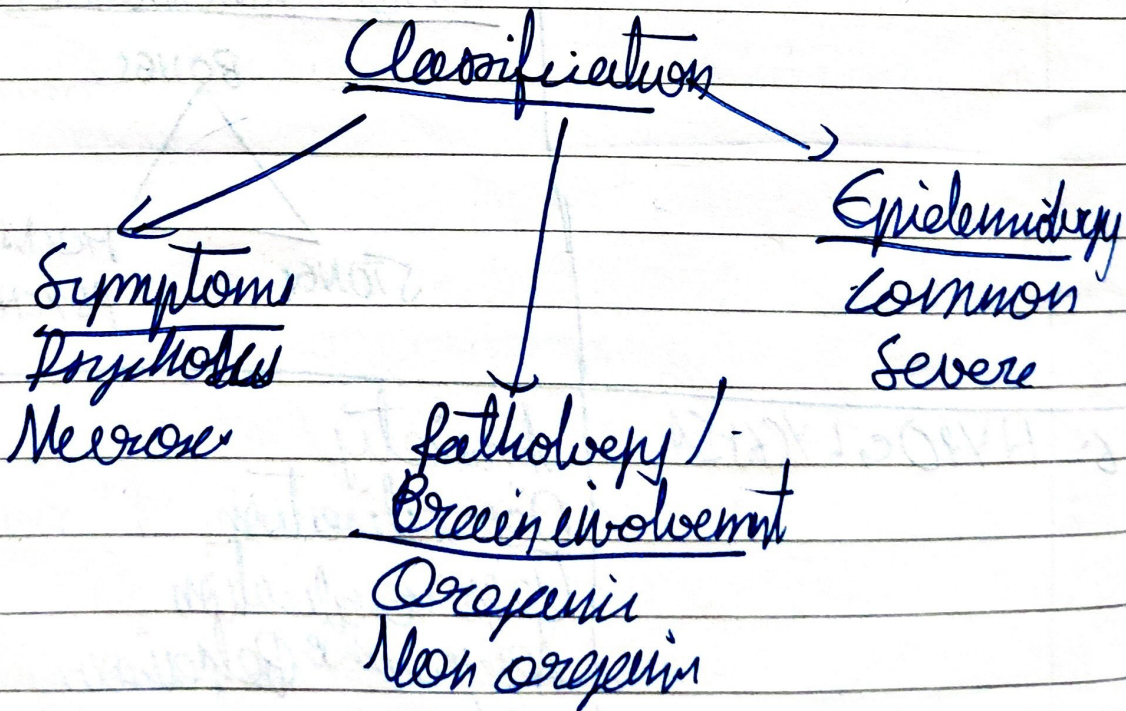 Classification
Symptoms
Psychoses
Neuroses
Pathology /
Brain involvement
Organic
Non organic
Epidemiology
Common
Severe